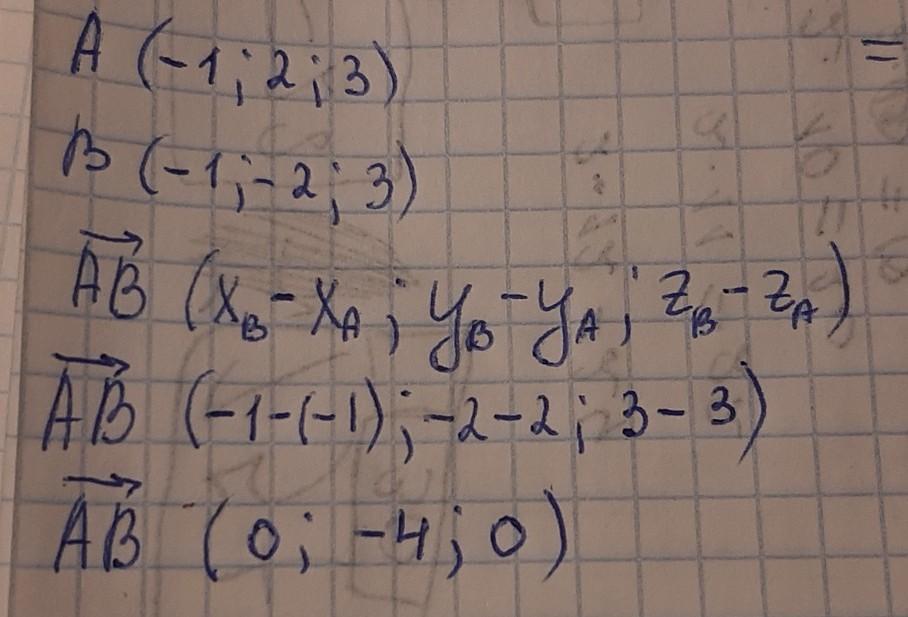 A (-1; 2; 3) =
B (-1; -2; 3)
AB (x_B - x_A; y_B - y_A; z_B - z_A)
AB (-1-(-1); -2-2; 3-3)
AB (0; -4; 0)